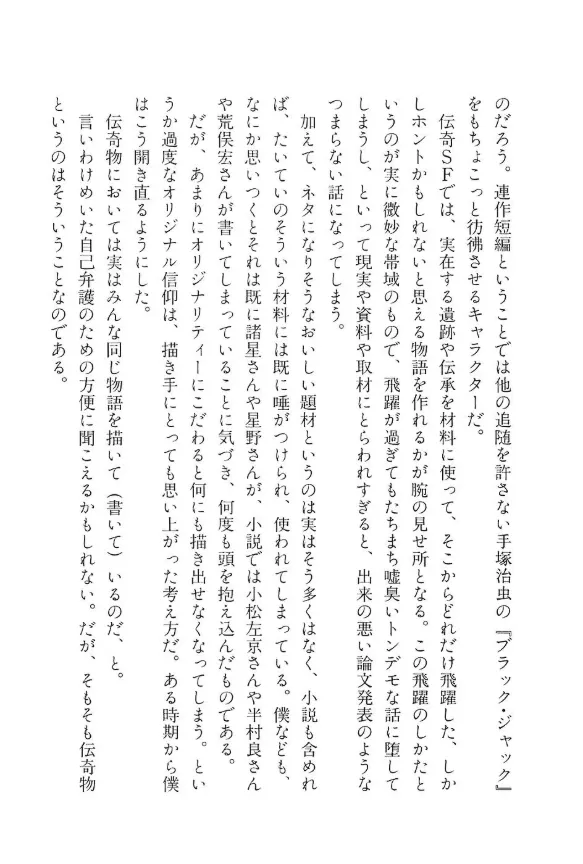 のだろう。連作短編ということでは他の追随を許さない手塚治虫の『ブラック・ジャック』
をもちょこっと彷彿させるキャラクターだ。
伝奇ＳＦでは、実在する遺跡や伝承を材料に使って、そこからどれだけ飛躍した、しか
しホントかもしれないと思える物語を作れるかが腕の見せ所となる。この飛躍のしかたと
いうのが実に微妙な帯域のもので、飛躍が過ぎてもたちまち嘘臭いトンデモな話に堕して
しまうし、といって現実や資料や取材にとらわれすぎると、出来の悪い論文発表のような
つまらない話になってしまう。
加えて、ネタになりそうなおいしい題材というのは実はそう多くはなく、小説も含めれ
ば、たいていのそういう材料には既に唾がつけられ、使われてしまっている。僕なども、
なにか思いつくとそれは既に諸星さんや星野さんが、小説では小松左京さんや半村良さん
や荒俣宏さんが書いてしまっていることに気づき、何度も頭を抱え込んだものである。
だが、あまりにオリジナリティーにこだわると何にも描き出せなくなってしまう。とい
うか過度なオリジナル信仰は、描き手にとっても思い上がった考え方だ。ある時期から僕
はこう開き直るようにした。
伝奇物においては実はみんな同じ物語を描いて（書いて）いるのだ、と。
言いわけめいた自己弁護のための方便に聞こえるかもしれない。だが、そもそも伝奇物
というのはそういうことなのである。